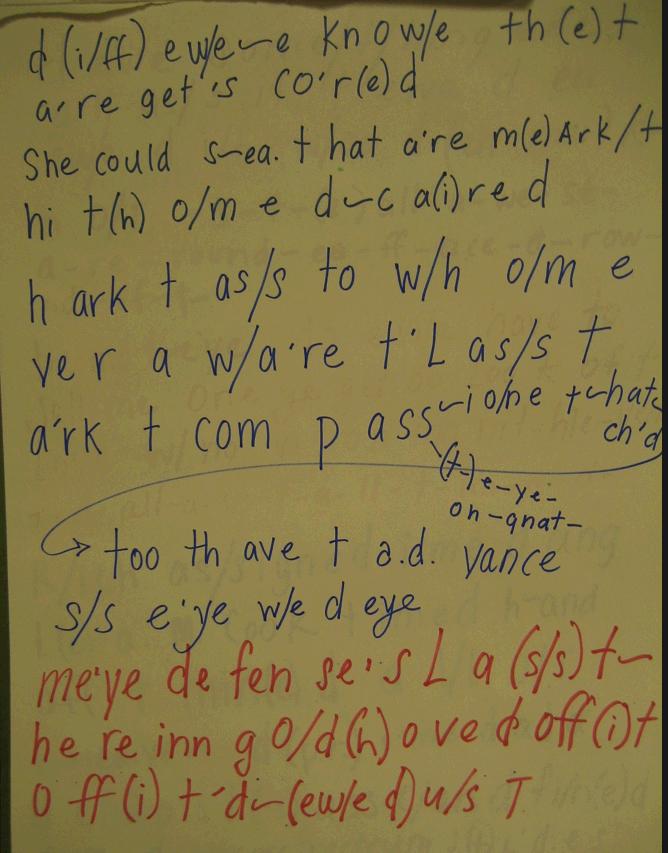 d(i/ff) ew/e~e know/e th(e)t
a're get's co'r(e)d
She could s~ea. t hat a're m(e) Ark/t
hi t(h) o/m e d~c a(i)re d
h ark t as/s to w/h o/m e
ve r a w/a're t'L as/s t
a'rk t com p ass~io/ne t~hats
ch'd
(t-)e-ye-
on-gnat-
too th ave t a.d. vance
s/s e'ye w/e d eye
me'ye de fen se's L a (s/s) t~
he re inn g o/d(h) o ve d off(i)t
o ff(i) t'd~(ew/e d) u/s T